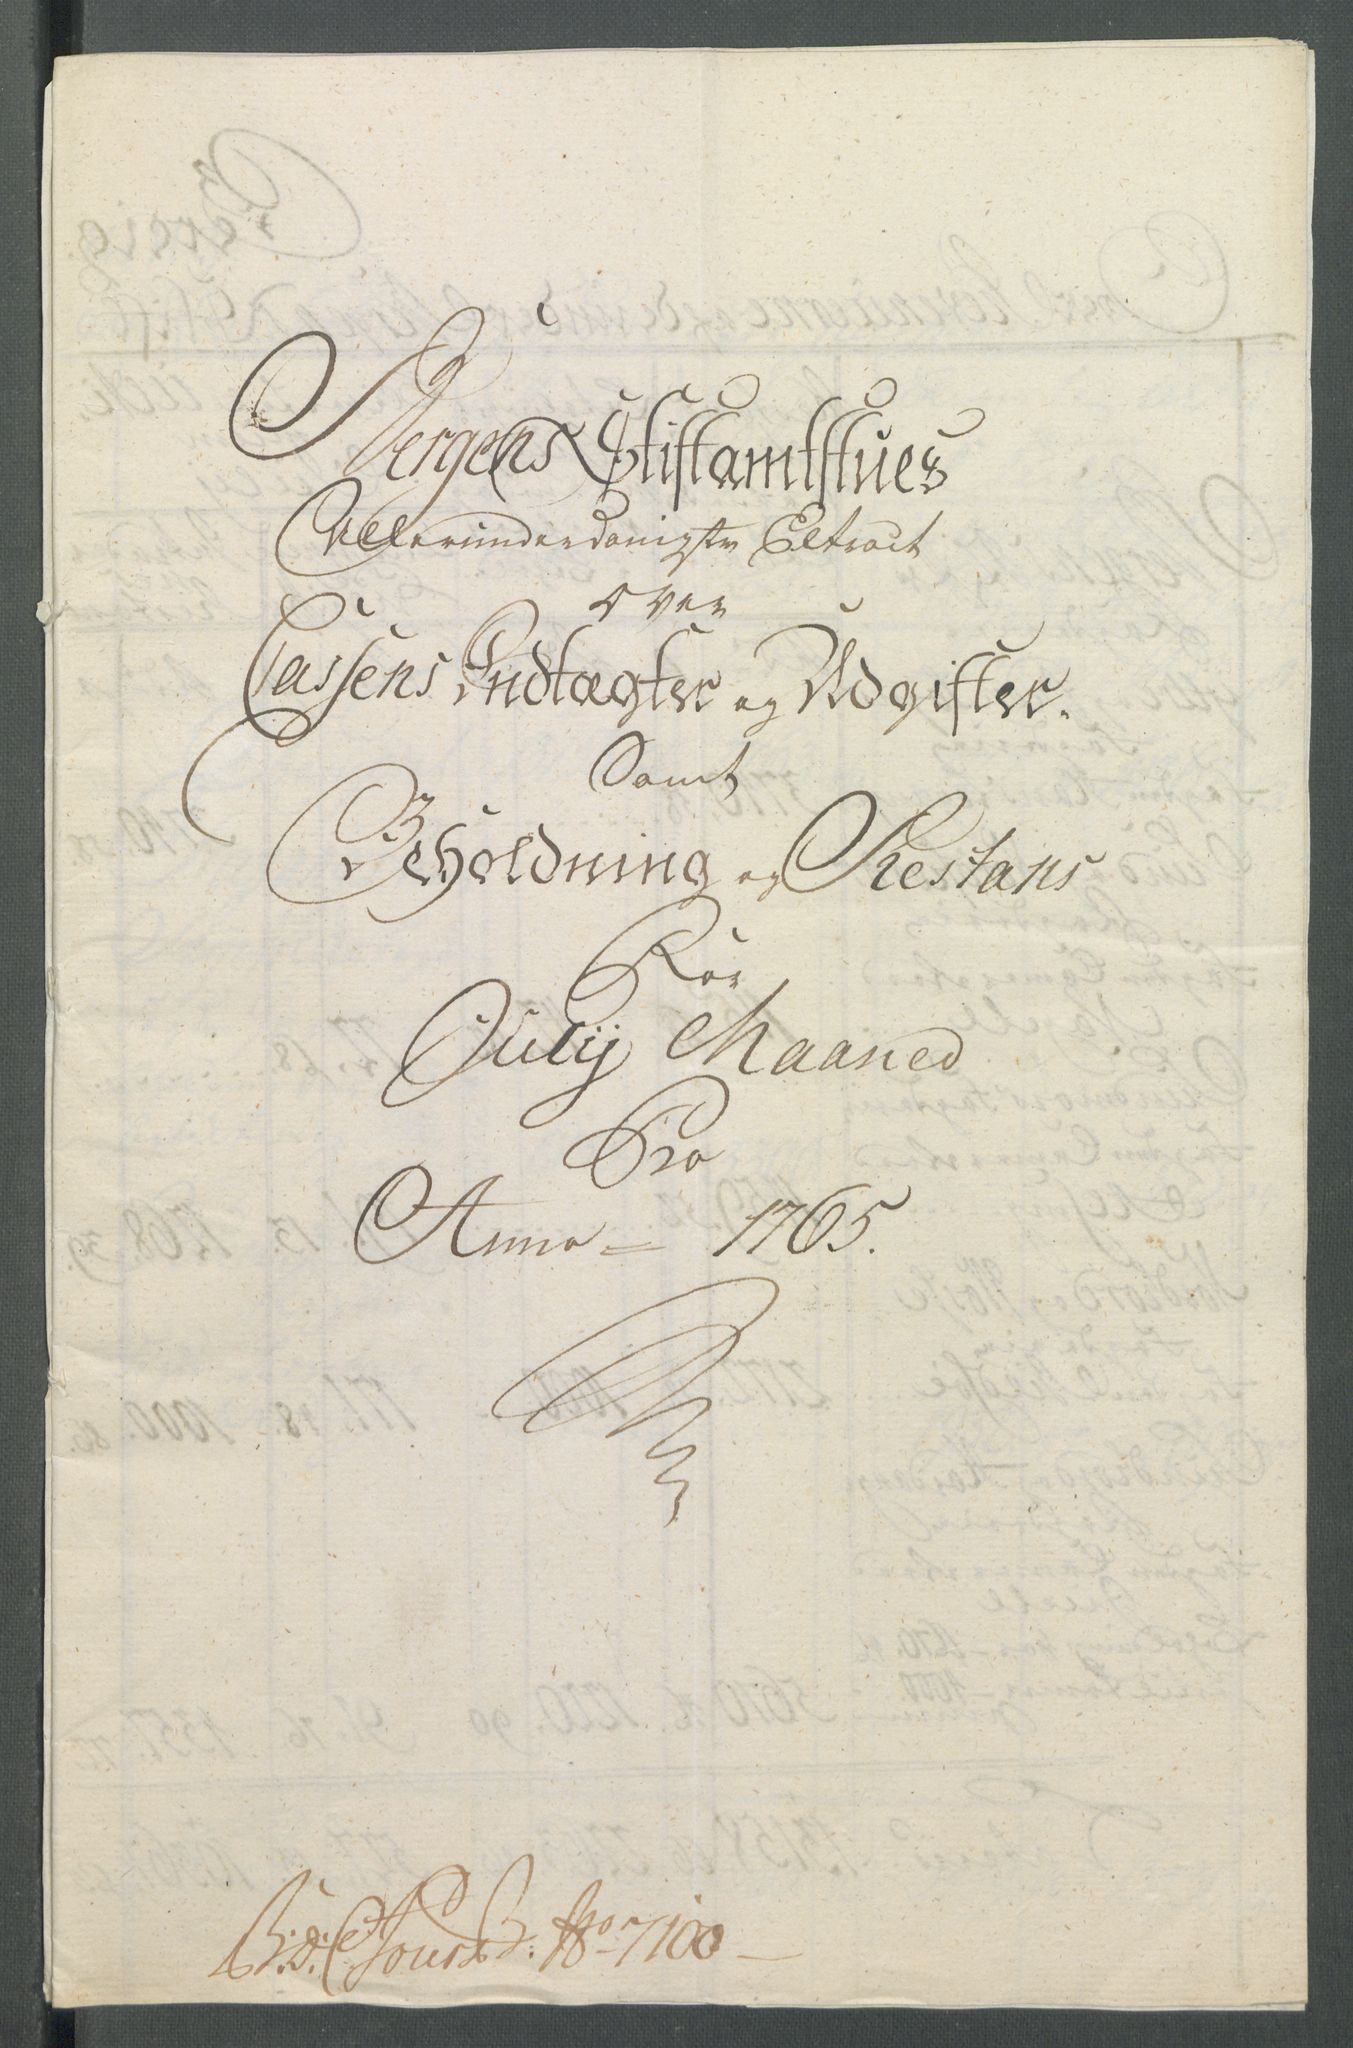 Bergens Stiftamtstues
Allerunderdanigste Extract
Over
Cassens Indtægter og Udgifter.
Samt
Beholdning og Restans
For
Julij Maaned
Pro
Anno = 1765.
No 7100